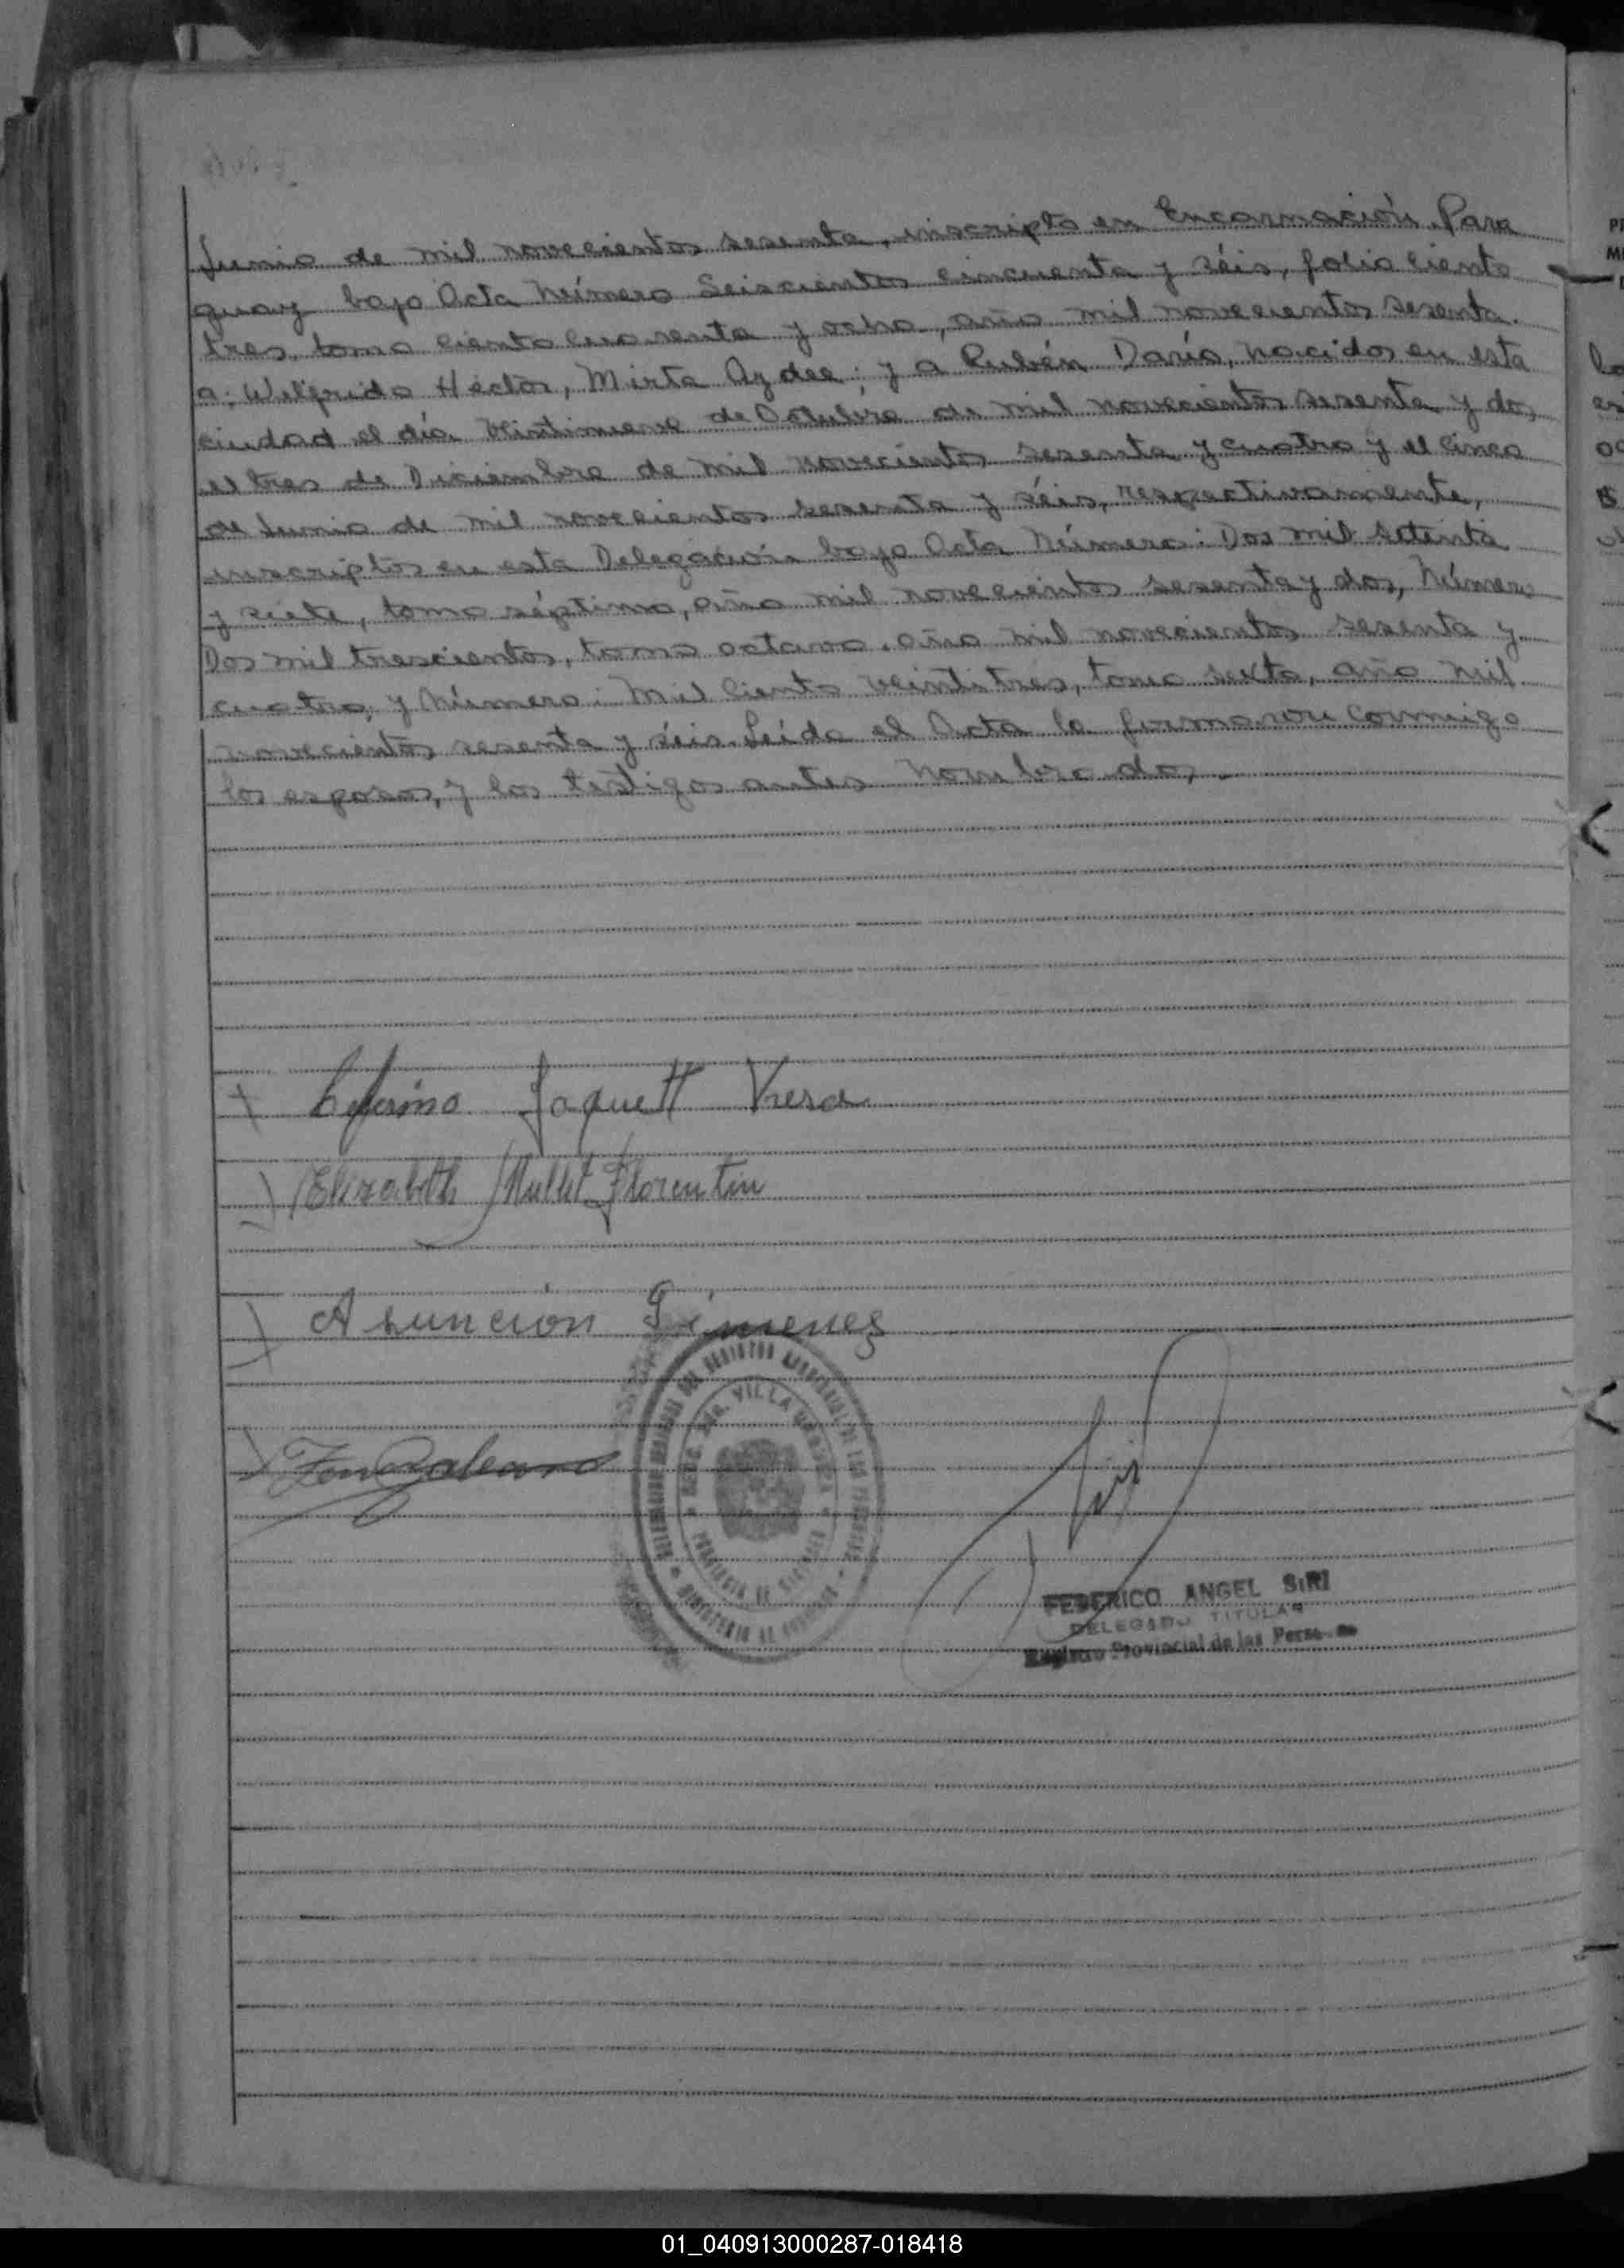 Junio de mil novecientos sesenta, inscripto en Encarnación, Para
guay bajo Acta Número Seiscientos cincuenta y séis, folio ciento
tres, tomo ciento cuarenta y ocho, año mil novecientos sesenta.
a: Wilfrido Héctor, Mirta Aydee; y a Rubén Darío, nacidos en esta
ciudad el día Veintinueve de Octubre de mil novecientos sesenta y dos,
el tres de Diciembre de mil novecientos sesenta y cuatro y el cinco
de Junio de mil novecientos sesenta y séis, respectivamente,
inscriptos en esta Delegación bajo Acta Número: Dos mil setenta
y siete, tomo séptimo, año mil novecientos sesenta y dos, Número
Dos mil trescientos, tomo octavo, año mil novecientos sesenta y
cuatro, y Número: Mil ciento veintitrés, tomo sexto, año mil
novecientos sesenta y séis. Leída el Acta la firmaron conmigo
los esposos, y los testigos antes nombrados.
Ceferino Jaquett Viera
Elizabeth Mullet Florentin
Asunción Gimenez
FEDERICO ANGEL SIRI
DELEGADO TITULAR
Registro Provincial de las Personas
01_040913000287-018418